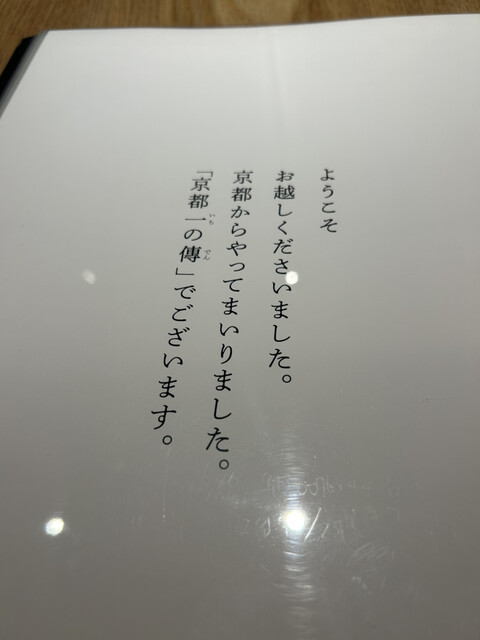 ようこそ
お越しくださいました。
京都からやってまいりました。
「京都一の傳」でございます。
いち
でん